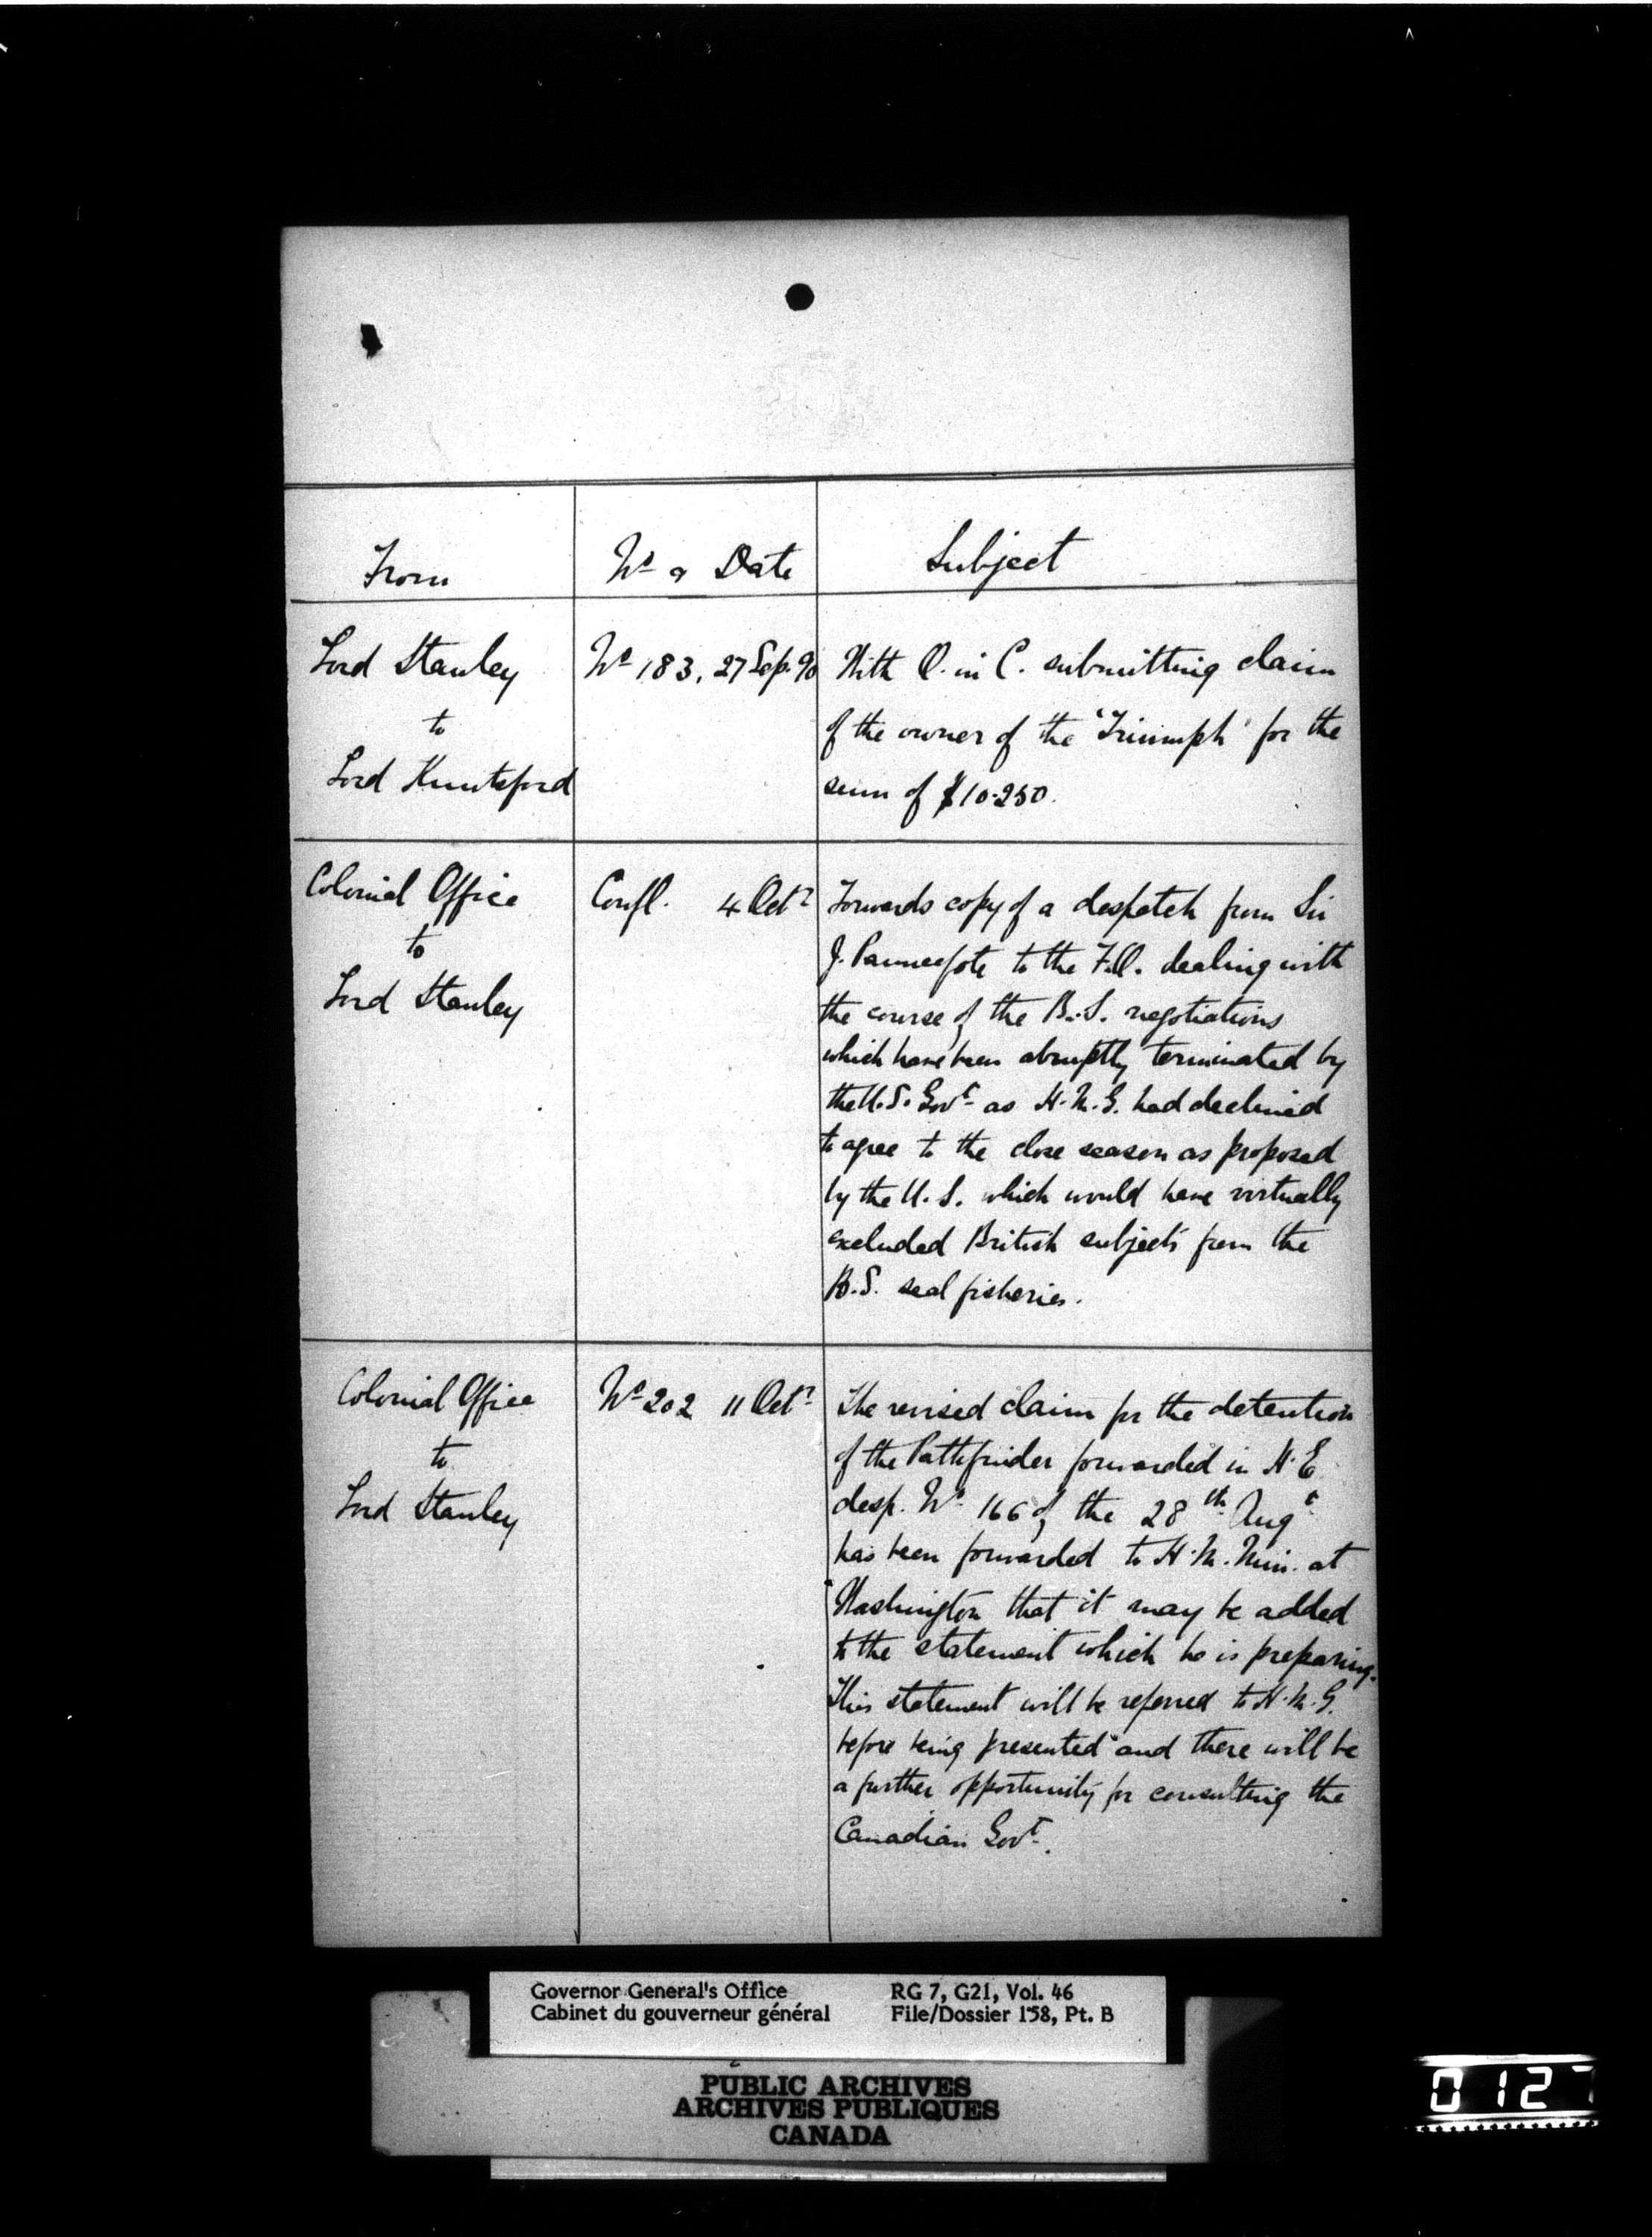 From
No & Date
Subject
Lord Stanley
to
Lord Knutsford
No 183. 27 Sep. 90
With O. in C. submitting claim
of the owner of the "Triumph" for the
sum of $10.250.
Colonial Office
to
Lord Stanley
Confl. 4 Octr
Forwards copy of a despatch from Sir
J. Pauncefote to the F.O. dealing with
the course of the B.S. negotiations
which have been abruptly terminated by
the U.S. Govt as H.M.G. had declined
to agree to the close season as proposed
by the U.S. which would have virtually
excluded British subjects from the
B.S. seal fisheries.
Colonial Office
to
Lord Stanley
No 202 11 Octr
The revised claim for the detention
of the Pathfinder forwarded in H.E
desp. No 166 of the 28th Augt
has been forwarded to H.M. Min. at
Washington that it may be added
to the statement which he is preparing.
This statement will be referred to H.M.G.
before being presented "and there will be
a further opportunity for consulting the
Canadian Govt.
Governor General's Office
Cabinet du gouverneur général
RG 7, G21, Vol. 46
File/Dossier 158, Pt. B
PUBLIC ARCHIVES
ARCHIVES PUBLIQUES
CANADA
0127